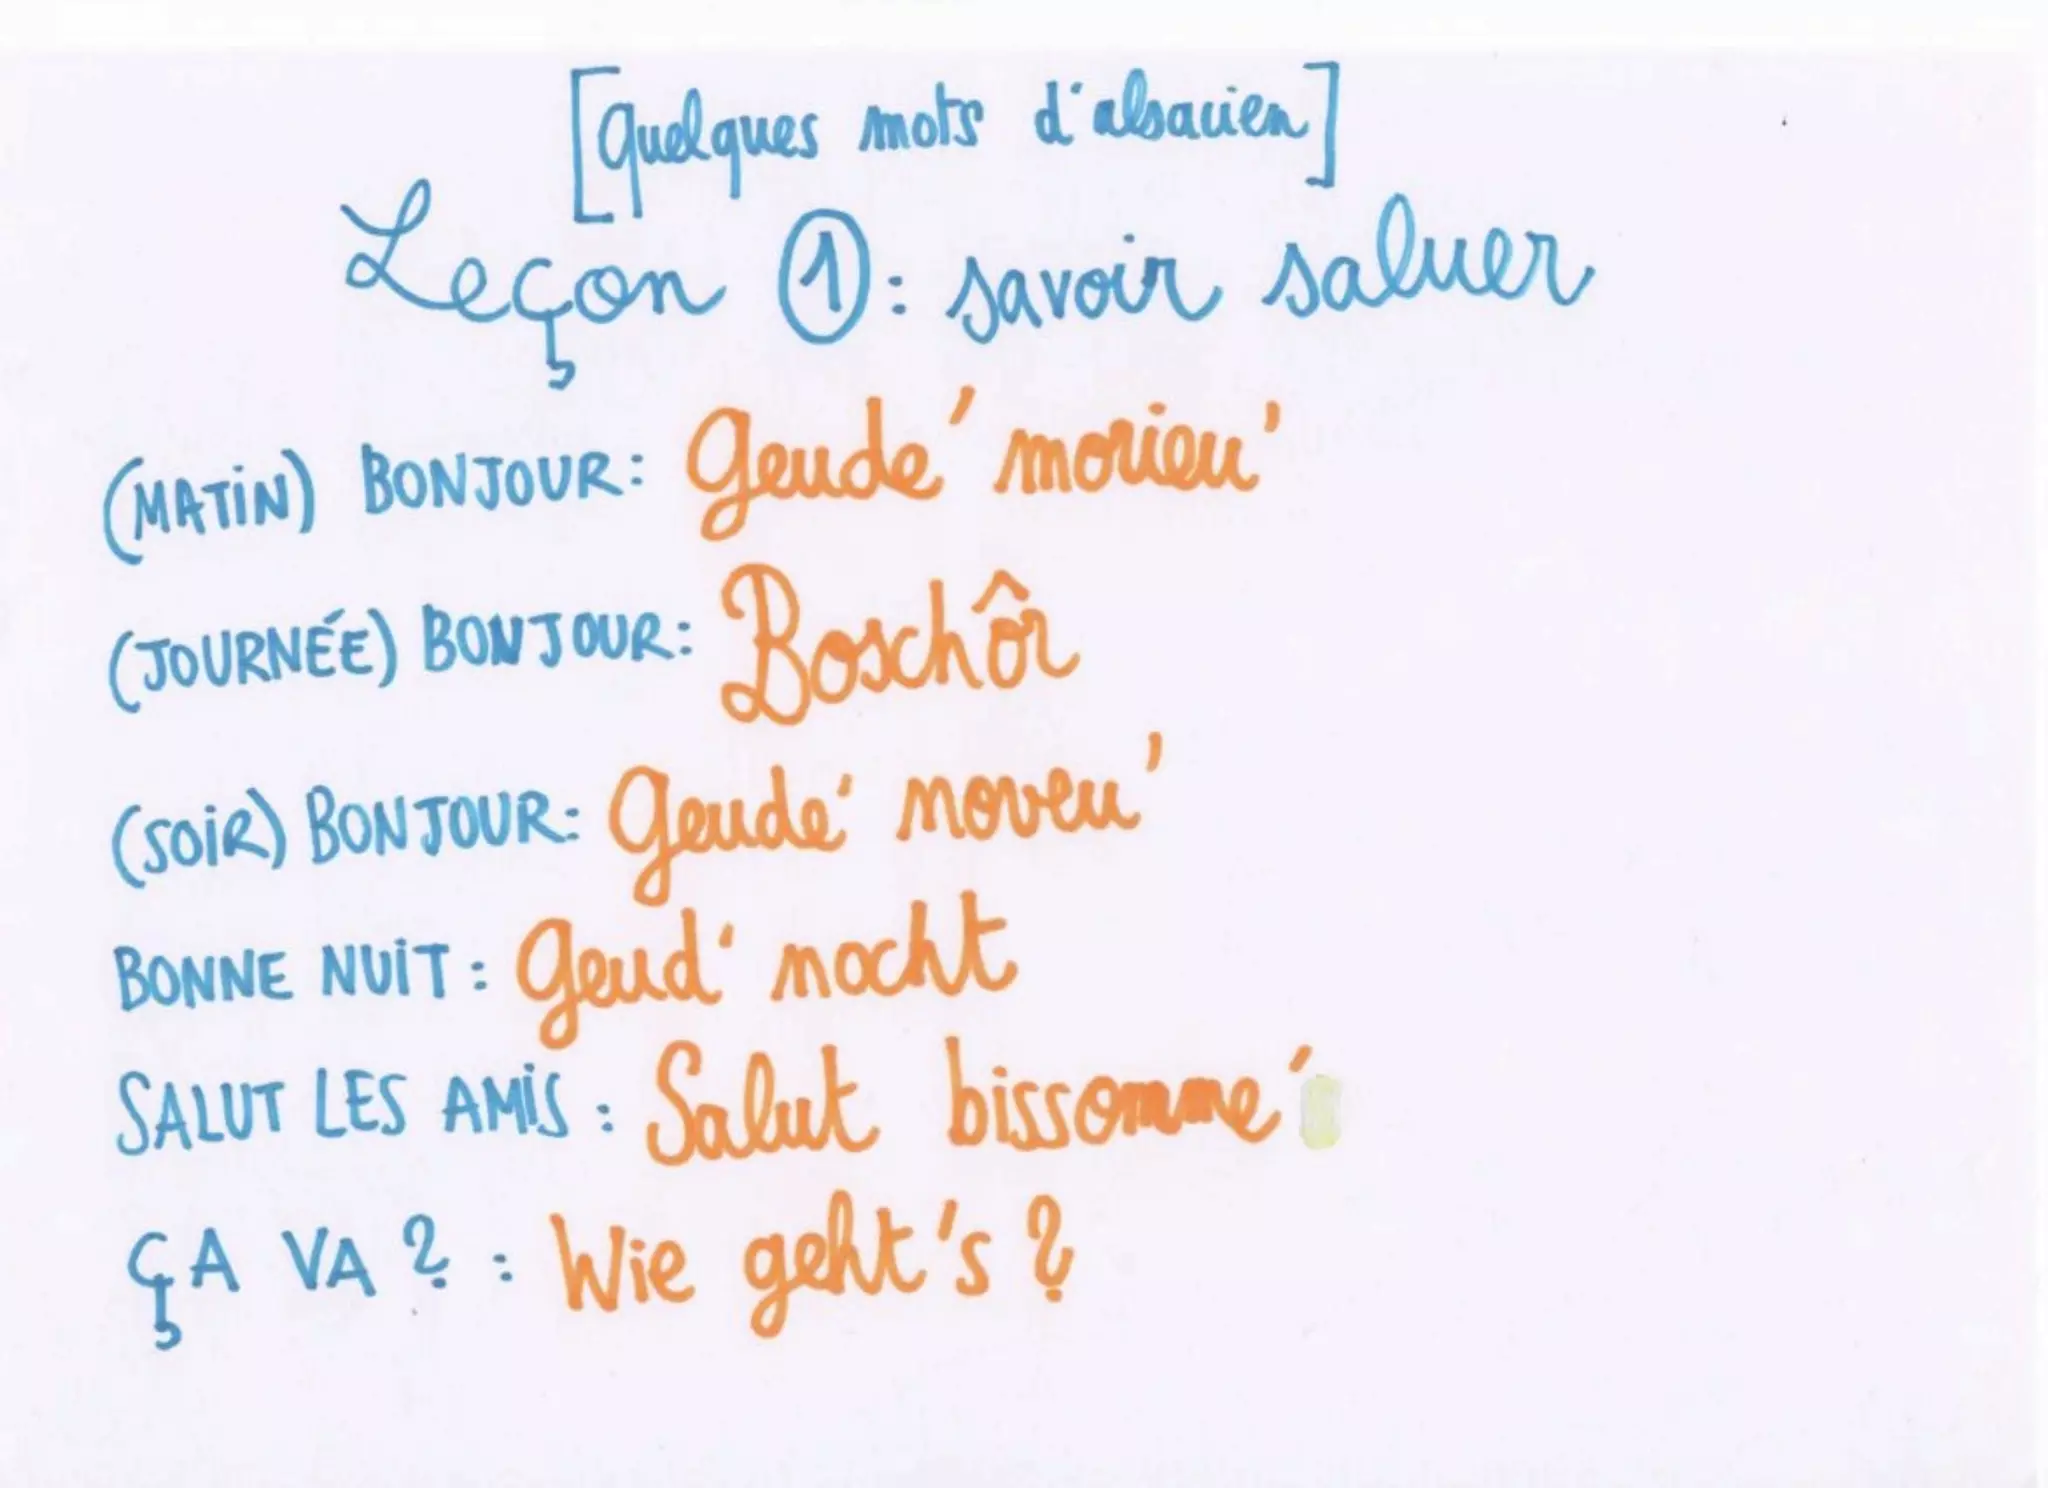 [Quelques mots d'alsacien]
Leçon ①: savoir saluer
(MATIN) BONJOUR: Geude' morieu'
(JOURNÉE) BONJOUR: Boschôr
(SOIR) BONJOUR: Geude' noveu'
BONNE NUIT: Geud' nocht
SALUT LES AMIS: Salut bissomme'
ÇA VA ? : Wie geht's ?